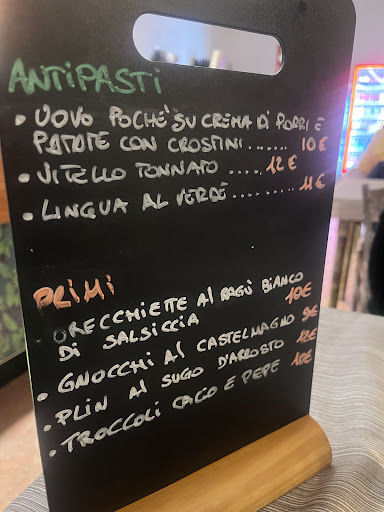 ANTIPASTI
• UOVO POCHÈ SU CREMA DI PORRI E
PATATE CON CROSTINI...... 10€
• VITELLO TONNATO ..... 12€
• LINGUA AL VERDE......... 11€
PRIMI
ORECCHIETTE AL RAGÙ BIANCO
DI SALSICCIA 10€
• GNOCCHI AL CASTELMAGNO 9€
• PLIN AL SUGO D'ARROSTO 12€
• TROCCOLI CACIO E PEPE 10€